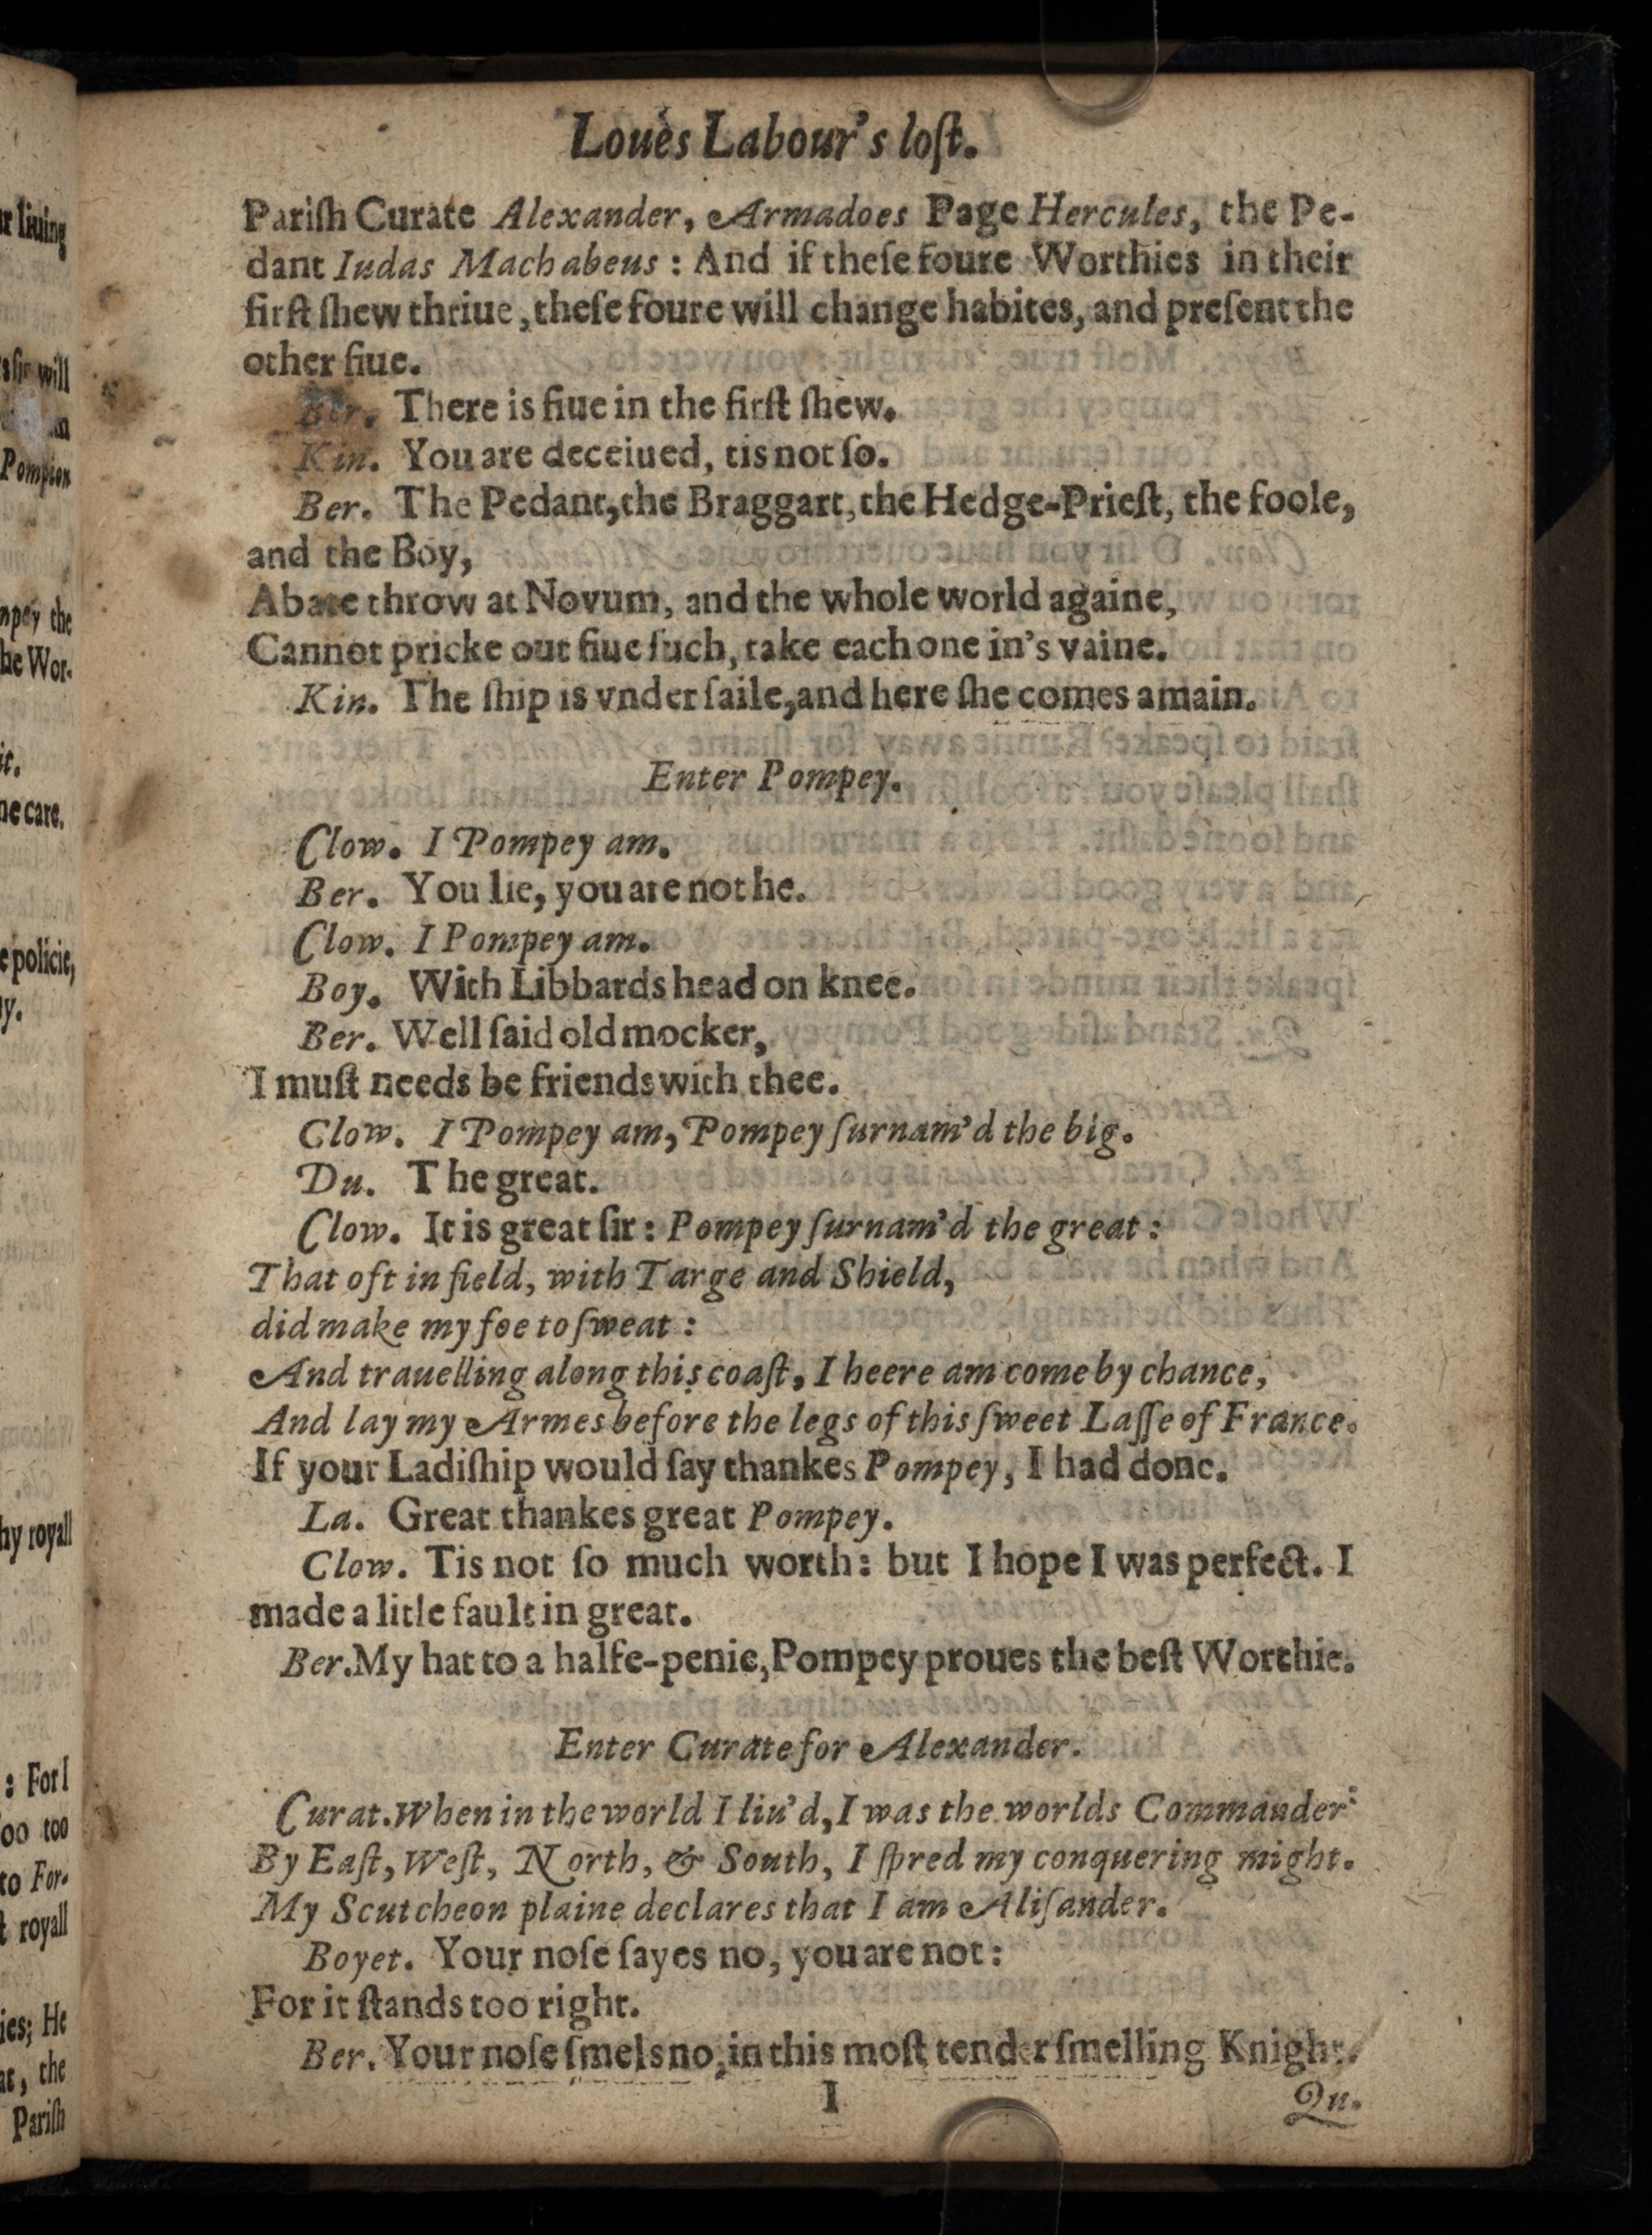 Loues Labour's lost.
Pariſh Curate Alexander, Armadoes Page Hercules, the Pe-
dant Iudas Machabeus : And if theſe foure Worthies in their
firſt ſhew thriue, theſe foure will change habites, and preſent the
other fiue.
Ber. There is fiue in the firſt ſhew.
Kin. You are deceiued, tis not ſo.
Ber. The Pedant, the Braggart, the Hedge-Prieſt, the foole,
and the Boy,
Abate throw at Novum, and the whole world againe,
Cannot pricke out fiue ſuch, take each one in's vaine.
Kin. The ſhip is vnder ſaile, and here ſhe comes amain.
Enter Pompey.
Clow. I Pompey am.
Ber. You lie, you are not he.
Clow. I Pompey am.
Boy. With Libbards head on knee.
Ber. Well ſaid old mocker,
I muſt needs be friends with thee.
Clow. I Pompey am, Pompey ſurnam'd the big.
Du. The great.
Clow. It is great ſir : Pompey ſurnam'd the great :
That oft in field, with Targe and Shield,
did make my foe to ſweat :
And trauelling along this coaſt, I heere am come by chance,
And lay my Armes before the legs of this ſweet Laſſe of France.
If your Ladiſhip would ſay thankes Pompey, I had done.
La. Great thankes great Pompey.
Clow. Tis not ſo much worth : but I hope I was perfect. I
made a litle fault in great.
Ber. My hat to a halfe-penie, Pompey proues the beſt Worthie.
Enter Curate for Alexander.
Curat. When in the world I liu'd, I was the worlds Commander:
By Eaſt, Weſt, North, & South, I ſpred my conquering might.
My Scutcheon plaine declares that I am Aliſander.
Boyet. Your noſe ſayes no, you are not :
For it ſtands too right.
Ber. Your noſe ſmels no, in this moſt tender ſmelling Knight.
I
Qu.